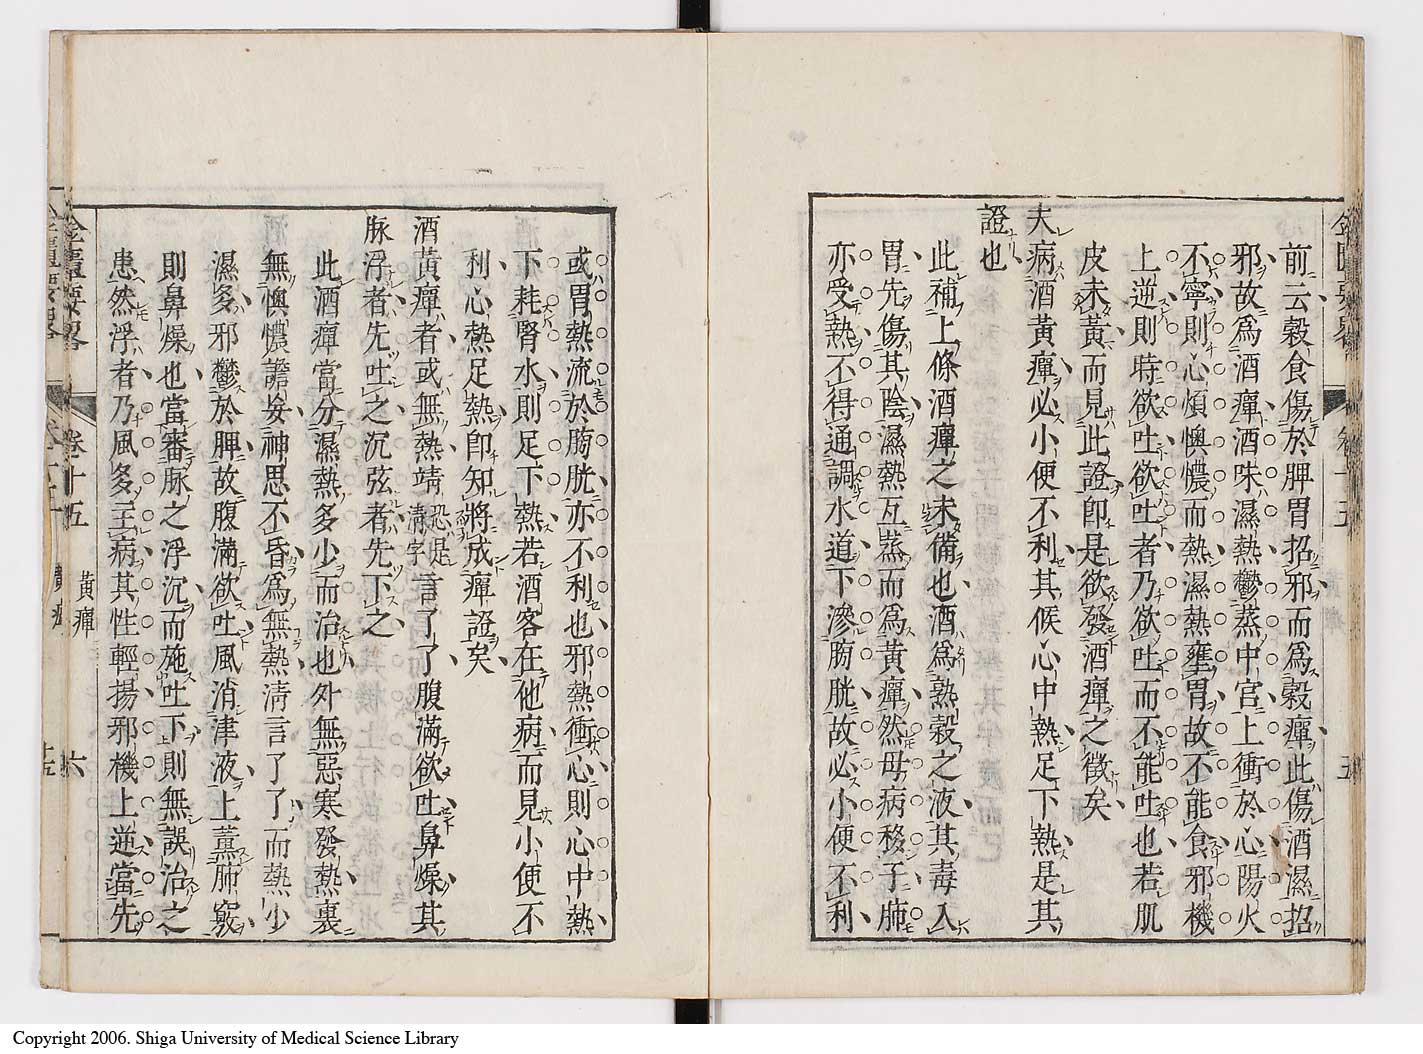 前云穀食傷於脾胃招邪而爲穀癉此傷酒濕招
邪故爲酒癉酒味濕熱鬱蒸中宮上衝於心陽火
不寧則心煩懊憹而熱濕熱壅胃故不能食邪機
上逆則時欲吐欲吐者乃欲吐而不能吐也若肌
皮未黃而見此證卽是欲發酒癉之徵矣
夫病酒黃癉必小便不利其候心中熱足下熱是其
證也
此補上條酒癉之未備也酒爲熟穀之液其毒入
胃先傷其陰濕熱互蒸而爲黃癉然母病移子肺
亦受熱不得通調水道下滲膀胱故必小便不利
或胃熱流於膀胱亦不利也邪熱衝心則心中熱
下耗腎水則足下熱若酒客在他病而見小便不
利心熱足熱卽知將成癉證矣
酒黃癉者或無熱靖恐是清字言了了腹滿欲吐鼻燥其
脉浮者先吐之沉弦者先下之
此酒癉當分濕熱多少而治也外無惡寒發熱裏
無懊憹譫妄神思不昏爲無熱清言了了而熱少
濕多邪鬱於脾故腹滿欲吐風消津液上薰肺竅
則鼻燥也當審脉之浮沉而施吐下則無誤治之
患然浮者乃風多主病其性輕揚邪機上逆當先
金匱要畧
卷十五
黃癉
六